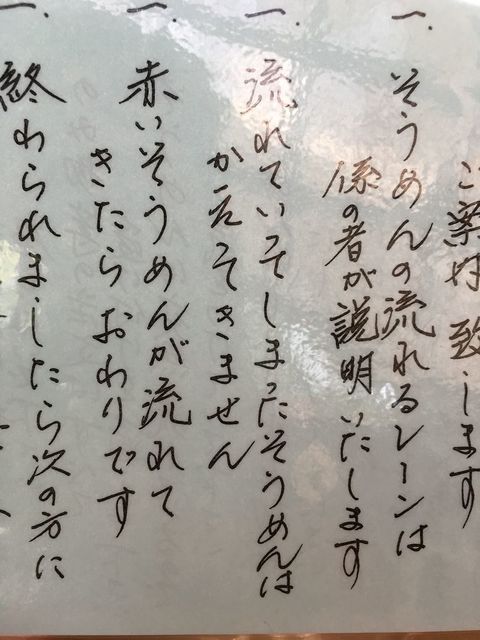 ご案内致します
一.そうめんの流れるレーンは
係の者が説明いたします
一.流れていってしまったそうめんは
かえってきません
一.赤いそうめんが流れて
きたらおわりです
一.終わられましたら次の方に